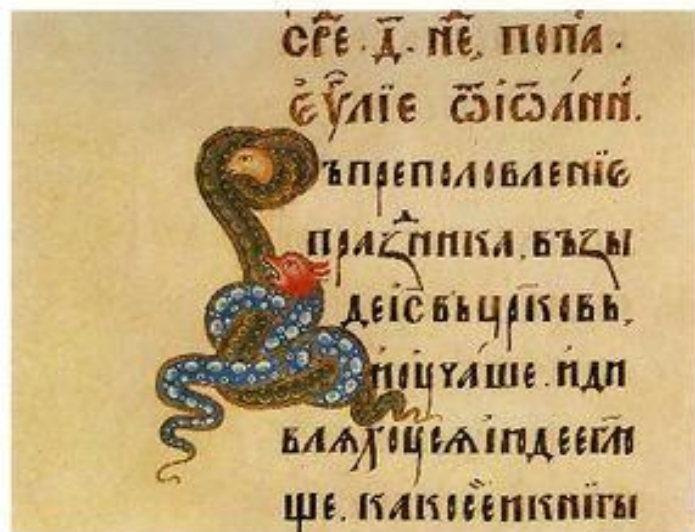 СРЕ · Д҃ · НЕ҃, ПОПА ·
ЄУ҃ЛІЕ Ѿ ІѠА́НН.
Ъ ПРЕПОЛОВЛЕНІЕ
ПРАЗⷣНИКА. ВЪЗЫ
ДЕ І҃С ВЪ ЦР҃КОВЬ,
И ОУЧА́ШЕ. И ДИ
ВЛѦХОУСѦ ІЮДЕЕ ГЛ҃Ю
ЩЕ. КАКО СЕ́Й КНИГЫ